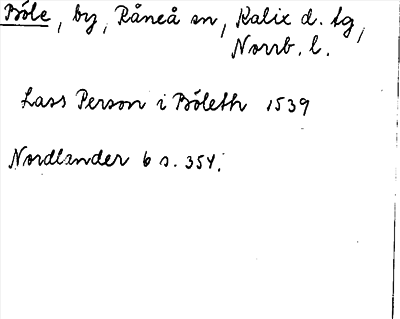 Böle, by, Råneå sn, Kalix d. tg,
Norrb. l.
Lass Person i Böleth 1539
Nordlander 6 s. 354.